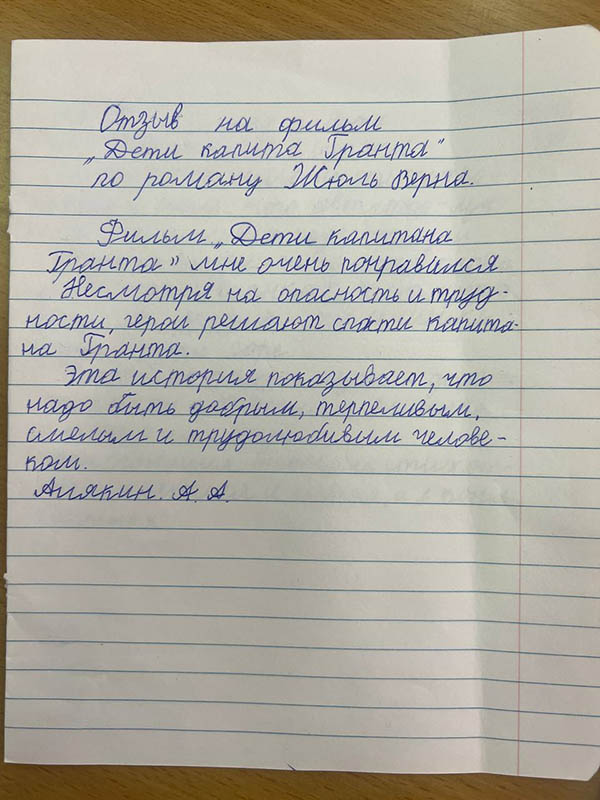 Отзыв на фильм
„Дети капита Гранта"
по роману Жюль Верна.
Фильм „Дети капитана
Гранта" мне очень понравился
Несмотря на опасность и труд-
ности, герои решают спасти капита-
на Гранта.
Эта история показывает, что
надо быть добрым, терпеливым,
смелым и трудолюбивым челове-
ком.
А. А.